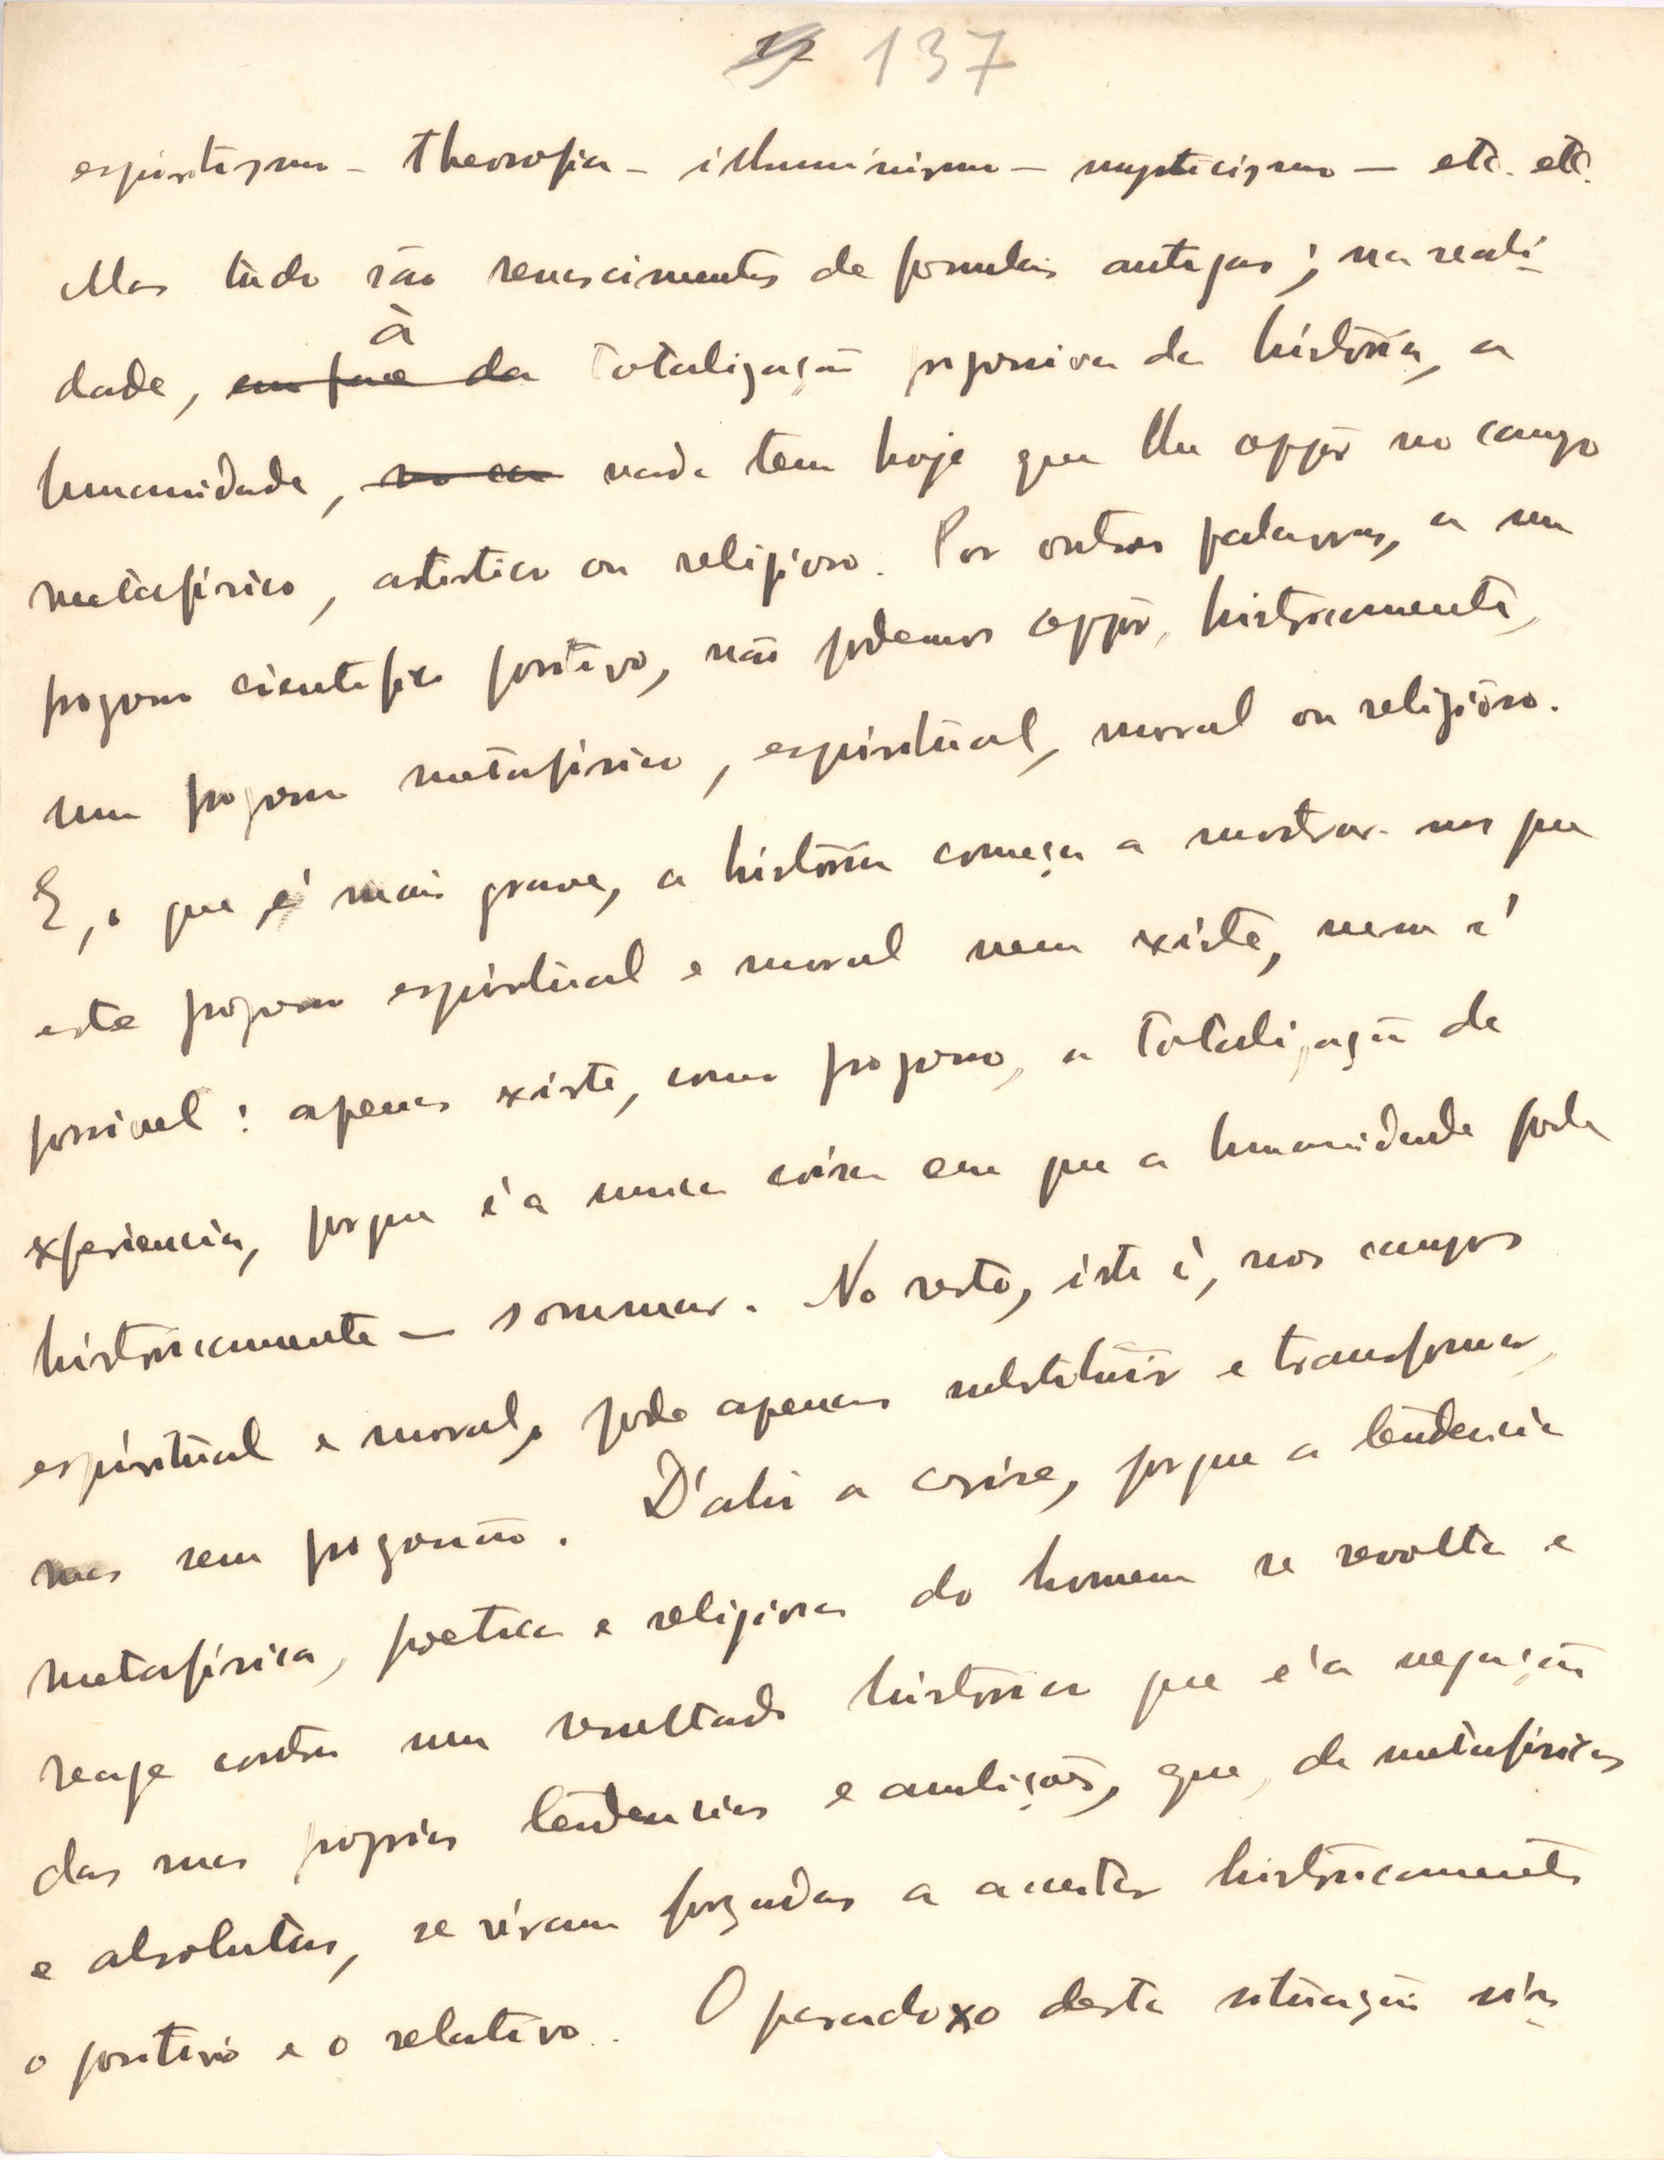 137
espiritismo - theosofia - illuminismo - mysticismo - etc. etc.
Mas tudo são renascimentos de formulas antigas; na reali-
dade, em face da à totalização progressiva da história, a
humanidade, no ca nada tem hoje que lhe oppôr no campo
metafísico, artistico ou religioso. Por outras palavras, a um
progresso cientifico positivo, não podemos oppôr, historicamente,
um progresso metafisico, espiritual, moral ou religioso.
E, o que é mais grave, a história começa a mostrar-nos que
este progresso espiritual e moral nem existe, nem é
possivel: apenas existe, como progresso, a totalização da
experiencia, porque é a unica coisa em que a humanidade pode
historicamente - sommar. No resto, isto é, nos campos
espiritual e moral, pode apenas substituir e transformar,
mas sem progressão. D'ahi a crise, porque a tendencia
metafisica, poetica e religiosa do homem se revolta e
reage contra um resultado historico que é a negação
das suas proprias tendencias e ambições, que, de metafisicas
e absolutas, se viram forçadas a aceitar historicamente
o positivo e o relativo. O paradoxo desta situação